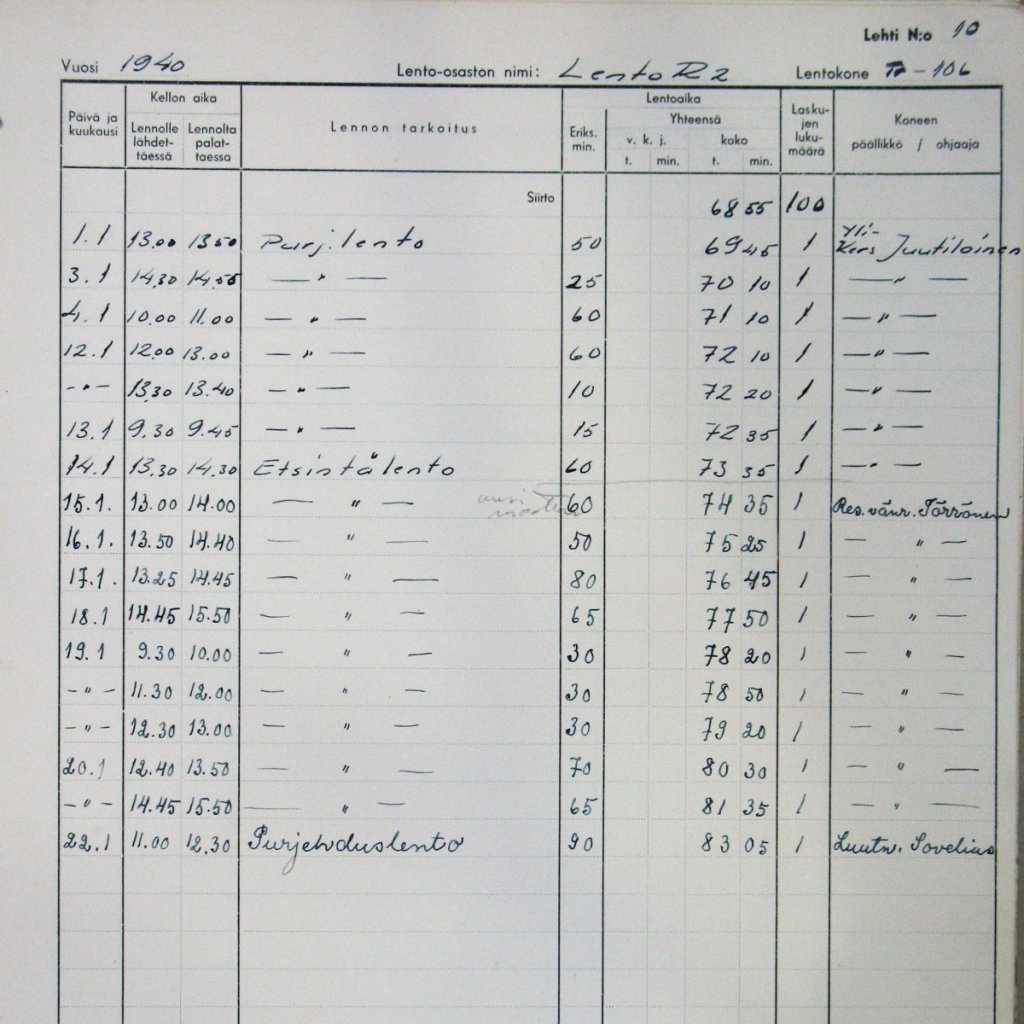 Lehti N:o 10
Vuosi 1940 Lento-osaston nimi: LentoR2 Lentokone Fr-106
Päivä ja kuukausi Kellon aika Lennolle lähdettäessä Lennolta palattaessa Lennon tarkoitus Lentoaika Eriks. min. Yhteensä v. k. j. t. min. koko t. min. Laskujen lukumäärä Koneen päällikkö / ohjaaja
Siirto 68 55 100
1.1 13.00 13.50 Purj.lento 50 69 45 1 Yli-Kers Juutilainen
3.1 14.30 14.55 — " — 25 70 10 1 — " —
4.1 10.00 11.00 — " — 60 71 10 1 — " —
12.1 12.00 13.00 — " — 60 72 10 1 — " —
- " - 13.30 13.40 — " — 10 72 20 1 — " —
13.1 9.30 9.45 — " — 15 72 35 1 — " —
14.1 13.30 14.30 Etsintälento 60 73 35 1 — " —
15.1. 13.00 14.00 — " — 60 74 35 1 Res.vänr. Törrönen
16.1. 13.50 14.40 — " — 50 75 25 1 — " —
17.1. 13.25 14.45 — " — 80 76 45 1 — " —
18.1 14.45 15.50 — " — 65 77 50 1 — " —
19.1 9.30 10.00 — " — 30 78 20 1 — " —
- " - 11.30 12.00 — " — 30 78 50 1 — " —
- " - 12.30 13.00 — " — 30 79 20 1 — " —
20.1 12.40 13.50 — " — 70 80 30 1 — " —
- " - 14.45 15.50 — " — 65 81 35 1 — " —
22.1 11.00 12.30 Purjehduslento 90 83 05 1 Luutn. Sovelius